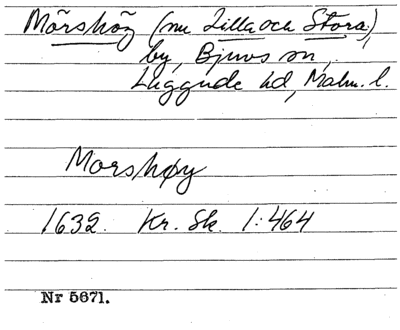 Mörshög (nu Lilla och Stora),
by, Bjuvs sn,
Luggude hd, Malm. l.
Morshøy
1632. Kr. Sk. 1:464
Nr 5671.